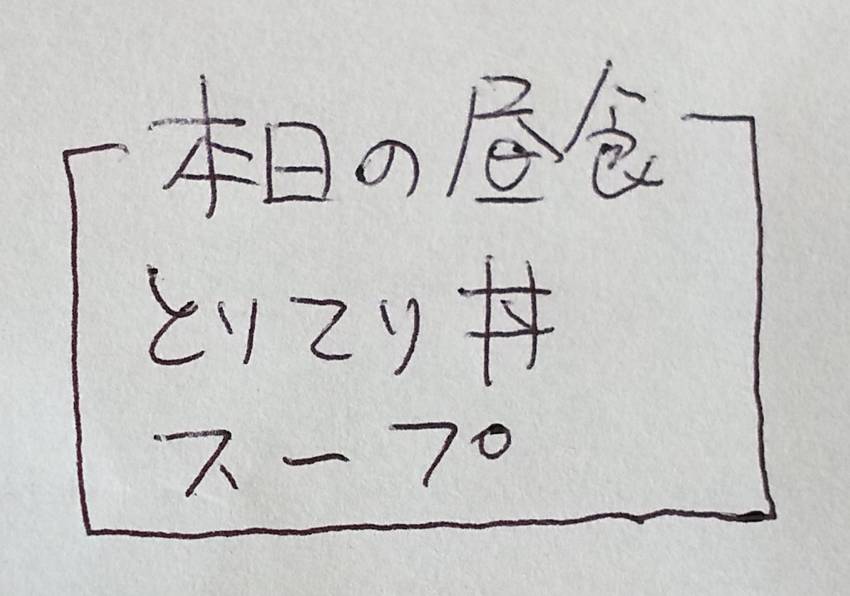 本日の昼食
とりてり丼
スープ